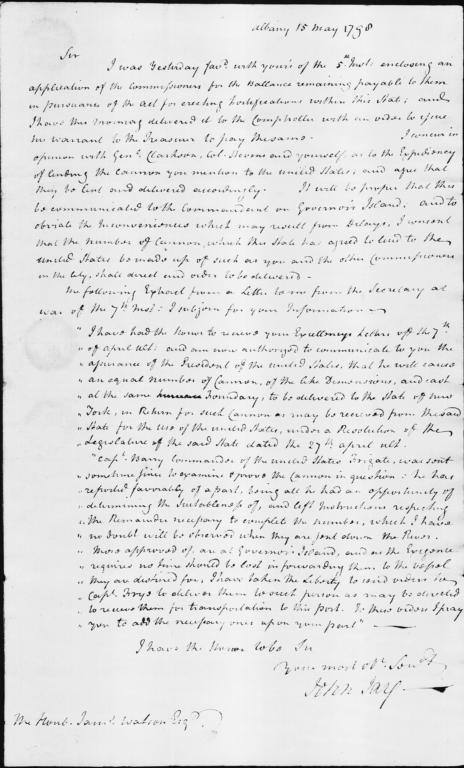 Albany 15 May 1798
Sir
I was Yesterday fav.d with yours of the 5th Inst: enclosing an
application of the Commissioners for the Ballance remaining payable to them
in pursuance of the Act for erecting fortifications within this State; and
I have this Morning delivered it to the Comptroller with an order to issue
his warrant to the Treasurer to pay the same. I concur in
opinion with Genl. Clarkson, Col. Stevens and yourself, as to the Expediency
of lending the Cannon you mention to the united States; and agree that
they be lent and delivered accordingly. It will be proper that this
be communicated to the Commandant on Governors Island; and to
obviate the Inconveniences which may result from Delays, I consent
that the number of Cannon, which this State has agreed to lend to the
united States be made up of such as you and the other Commissioners
in the City, shall direct and order to be delivered -
The following Extract from a Letter to me from the Secretary at
war of the 7th Inst: I subjoin for your Information -
"I have had the Honor to receive your Excellencys Letters of the 7th
" of april ult: and am now authorized to communicate to you the
" assurance of the President of the united States, that he will cause
" an equal number of Cannon, of the like Demensions, and cast
" at the same Foundary, to be delivered to the State of new
" York, in Return for such Cannon as may be received from the said
" State for the use of the united States, under a Resolution of the
" Legislature of the said State dated the 27th april ult.
" Capt. Barry Commander of the united States Frigate, was sent
" sometime since to examine & prove the Cannon in question: he has
" reported favorably of a part, being all he had an opportunity of
" determining the Suitableness of, and left Instructions respecting
" the Remainder necessary to complete the number, which I have
" no doubt will be observed when they are sent down the River.
" Those approved of, are at Governors Island, and as the Exigence
" requires no time should be lost in forwarding them to the vessel
" they are destined for, I have taken the Liberty to send orders to
" Capt. Frye to deliver them to such person as may be directed
" to receive them for transportation to this port. To these orders I pray
" you to add the necessary ones upon your part" -
I have the Honor to be Sir
Your most obt. Servt
John Jay
The Honb. Jams. Watson Esqr.